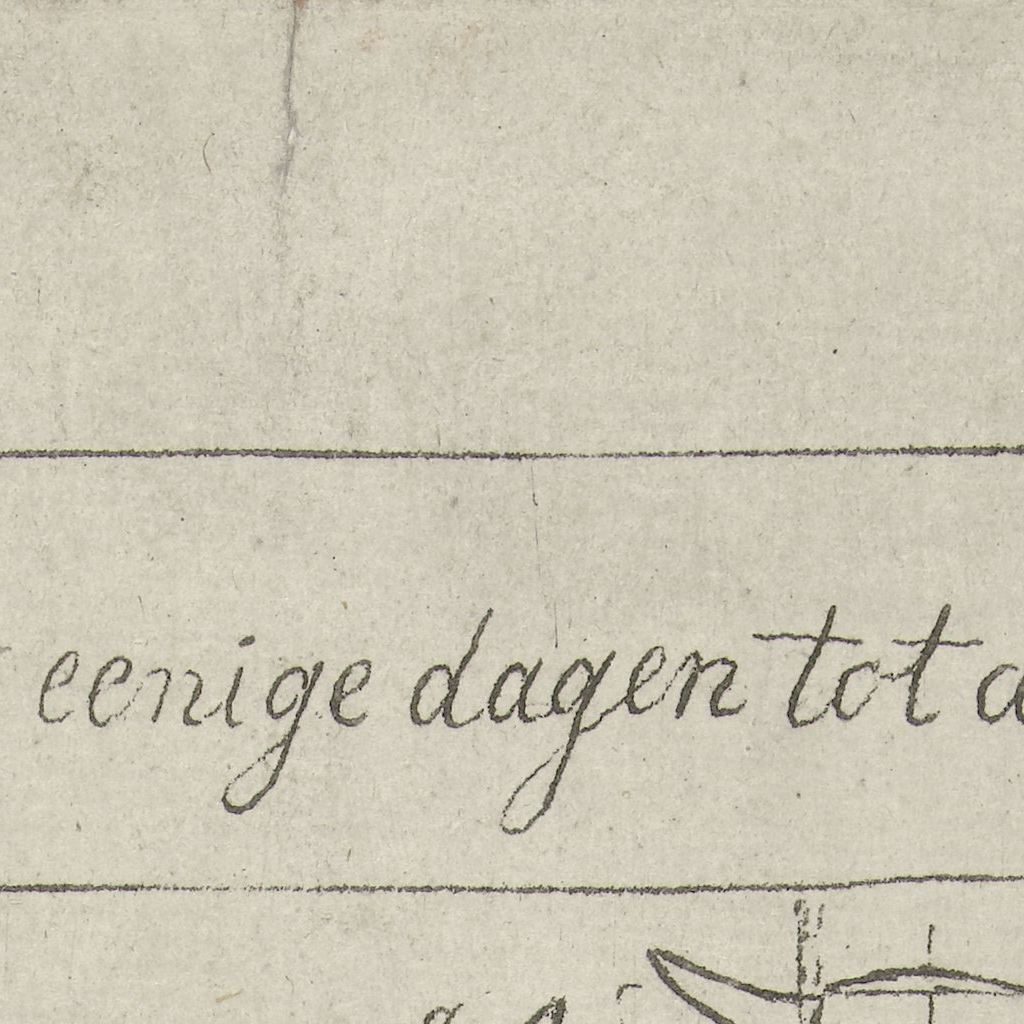 eenige dagen tot